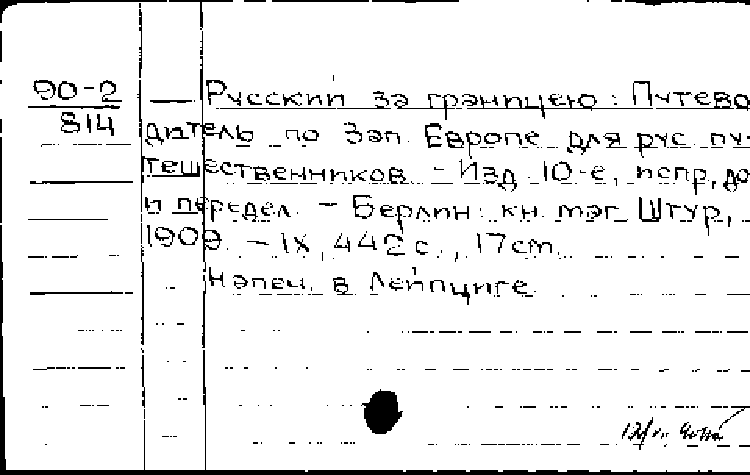 90-2
814
— Русский за границею: Путево
дитель по Зап. Европе для рус. пу-
тешественников. - Изд. 10-е, испр., до
и передел. - Берлин: кн. маг. Штур,
1909. - IX, 442 с., 17 cm.
Напеч. в Лейпциге.